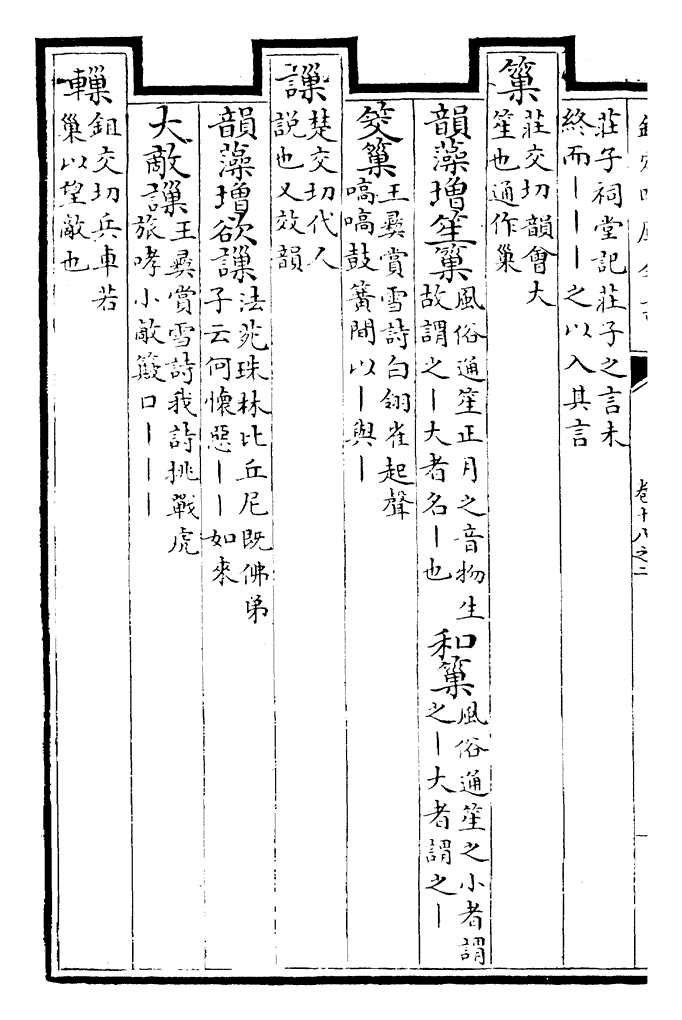 莊子祠堂記莊子之言未
終而丨丨丨之以入其言
䉭
莊交切韻會大
笙也通作巢
韻藻增笙䉭
風俗通笙正月之音物生
故謂之丨大者名丨也
和䉭
風俗通笙之小者謂
之丨大者謂之丨
笅䉭
王彞賞雪詩白翎雀起聲
嗃嗃鼓簧間以丨與丨
䜈
楚交切代人
説也又效韻
韻藻增欲䜈
法苑珠林比丘尼既佛弟
子云何懷惡丨丨如來
大敵䜈
王彞賞雪詩我詩挑戰虎
旅哮小敵簸口丨丨丨
轈
鉏交切兵車若
巢以望敵也
卷十八之二